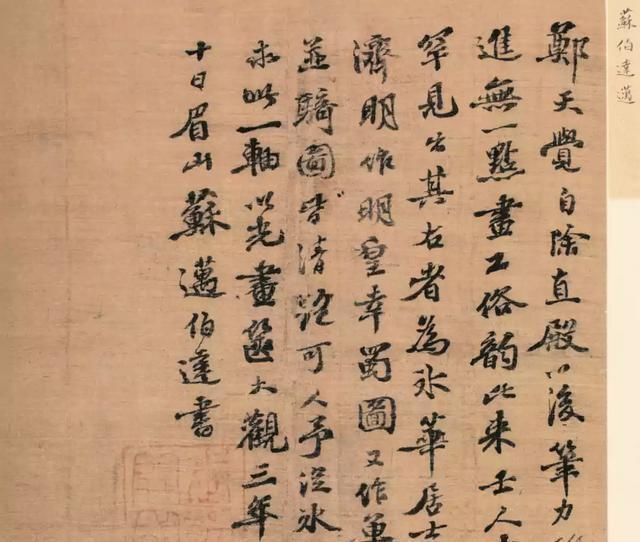 蘇伯達邁
鄭天覺自除直殿以後筆力
進無一點畫工俗韵比來士人
罕見出其右者為水華居士
濟明作明皇幸蜀圖又作單
並驕圖皆清 可人予從水
求此一軸以光畫篋大觀三年
十日眉山蘇邁伯達書